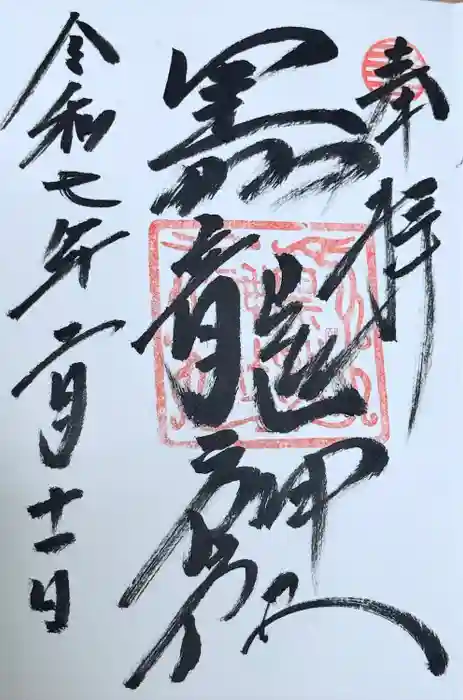 奉拝
黒龍神社
令和七年二月十一日